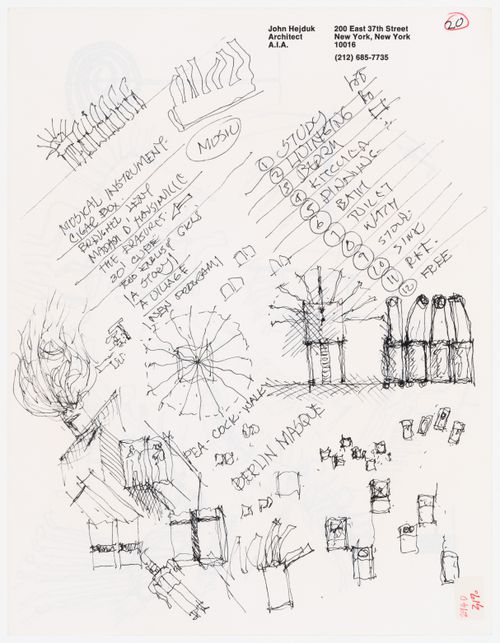 John Hejduk
Architect
A.I.A.
200 East 37th Street
New York, New York
10016
(212) 685-7735
20
MUSIC
MUSICAL INSTRUMENT.
CIGAR BOX
MADAM D'HAUNVILLE
3D CUBE
(A STORY)
A VILLAGE
NEW PROGRAM)
1 STUDY
2 LIVINGING
3 BEDRM
4 KITCHEN
5 DINNING
6 BATH
7 TOILET
8 WATH
9 STOVE
10 SINK
11 REF.
12 FREE
PEA-COCK-WALK
BERLIN MASQUE